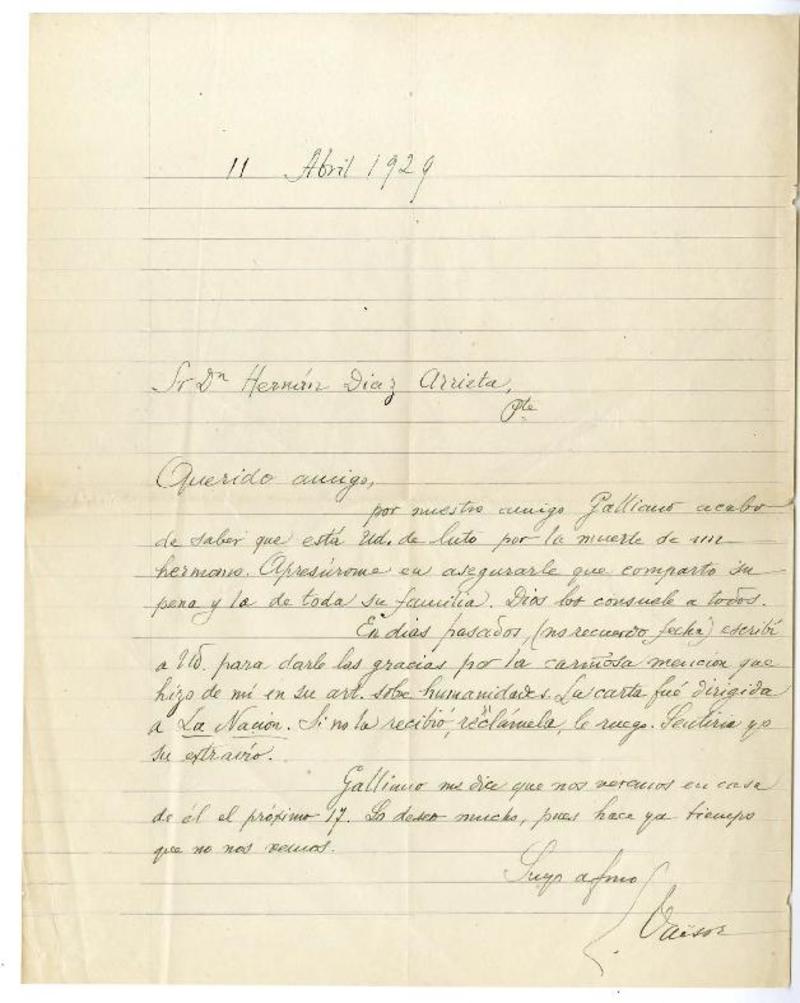 11 Abril 1929
Sr Dn Hernán Diaz Arrieta,
Pte
Querido amigo,
por nuestro amigo Galliano acabo
de saber que está Ud. de luto por la muerte de un
hermano. Apresúrome en asegurarle que comparto su
pena y la de toda su familia. Dios los consuele a todos.
En dias pasados, (no recuerdo fecha) escribí
a Ud. para darle las gracias por la cariñosa mencion que
hizo de mí en su art. sobe humanidades. La carta fué dirigida
a La Nacion. Si no la recibió, reclámela, le ruego. Sentiria yo
su extravío.
Galliano me dice que nos veremos en casa
de él el próximo 17. Lo deseo mucho, pues hace ya tiempo
que no nos vemos.
Suyo afmo
Vaïsse